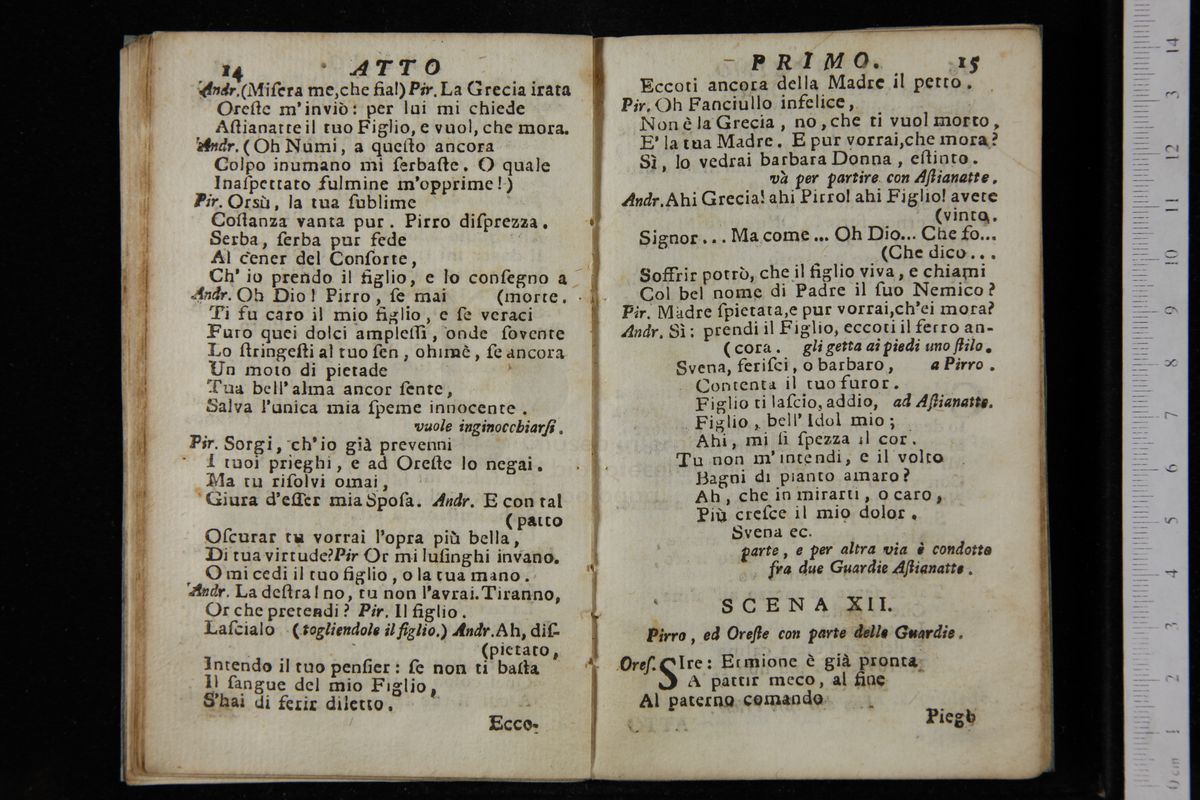 14 ATTO
Andr. (Miſera me,che fia!) Pir. La Grecia irata
Oreſte m'inviò: per lui mi chiede
Aſtianatte il tuo Figlio, e vuol, che mora.
Andr. (Oh Numi, a queſto ancora
Colpo inumano mi ſerbaſte. O quale
Inaſpettato fulmine m'opprime!)
Pir. Orsù, la tua ſublime
Coſtanza vanta pur. Pirro diſprezza.
Serba, ſerba pur fede
Al cener del Conſorte,
Ch' io prendo il figlio, e lo conſegno a
Andr. Oh Dio! Pirro, ſe mai (morte.
Ti fu caro il mio figlio, e ſe veraci
Furo quei dolci ampleſſi, onde ſovente
Lo ſtringeſti al tuo ſen, ohimè, ſe ancora
Un moto di pietade
Tua bell' alma ancor ſente,
Salva l'unica mia ſpeme innocente.
vuole inginocchiarſi.
Pir. Sorgi, ch'io già prevenni
I tuoi prieghi, e ad Oreſte lo negai.
Ma tu riſolvi omai,
Giura d'eſſer mia Spoſa. Andr. E con tal
(patto
Oſcurar tu vorrai l'opra più bella,
Di tua virtude? Pir Or mi luſinghi invano.
O mi cedi il tuo figlio, o la tua mano.
Andr. La deſtra! no, tu non l'avrai. Tiranno,
Or che pretendi? Pir. Il figlio.
Laſcialo (togliendole il figlio.) Andr. Ah, diſ-
(pietato,
Intendo il tuo penſier: ſe non ti baſta
Il ſangue del mio Figlio,
S'hai di ferir diletto,
Ecco-
PRIMO. 15
Eccoti ancora della Madre il petto.
Pir. Oh Fanciullo infelice,
Non è la Grecia, no, che ti vuol morto,
E' la tua Madre. E pur vorrai,che mora?
Sì, lo vedrai barbara Donna, eſtinto.
và per partire con Aſtianatte.
Andr. Ahi Grecia! ahi Pirro! ahi Figlio! avete
(vinto.
Signor... Ma come... Oh Dio... Che fo...
(Che dico...
Soffrir potrò, che il figlio viva, e chiami
Col bel nome di Padre il ſuo Nemico?
Pir. Madre ſpietata,e pur vorrai,ch'ei mora?
Andr. Sì: prendi il Figlio, eccoti il ferro an-
(cora. gli getta ai piedi uno ſtilo.
Svena, feriſci, o barbaro, a Pirro.
Contenta il tuo furor.
Figlio ti laſcio, addio, ad Aſtianatte.
Figlio, bell' Idol mio;
Ahi, mi ſi ſpezza il cor.
Tu non m'intendi, e il volto
Bagni di pianto amaro?
Ah, che in mirarti, o caro,
Più creſce il mio dolor.
Svena ec.
parte, e per altra via è condotto
fra due Guardie Aſtianatte.
SCENA XII.
Pirro, ed Oreſte con parte delle Guardie.
Oreſ. SIre: Ermione è già pronta
A partir meco, al fine
Al paterno comando
Piegò